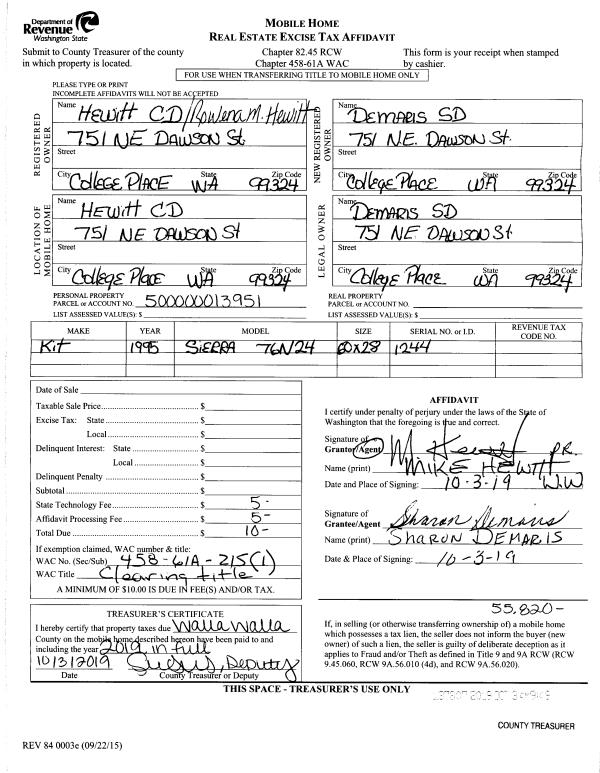 Department of
Revenue
Washington State
MOBILE HOME
REAL ESTATE EXCISE TAX AFFIDAVIT
Submit to County Treasurer of the county
in which property is located.
Chapter 82.45 RCW
Chapter 458-61A WAC
This form is your receipt when stamped
by cashier.
FOR USE WHEN TRANSFERRING TITLE TO MOBILE HOME ONLY
PLEASE TYPE OR PRINT
INCOMPLETE AFFIDAVITS WILL NOT BE ACCEPTED
REGISTERED OWNER
Name HEWITT CD/Rowena M. Hewitt
751 NE DAWSON St
Street
City COLLEGE PLACE State WA Zip Code 99324
NEW REGISTERED OWNER
Name DEMARIS SD
751 NE. DAWSON St.
Street
City COLLEGE PLACE State WA Zip Code 99324
LOCATION OF MOBILE HOME
Name HEWITT CD
751 NE DAWSON St
Street
City COLLEGE PLACE State WA Zip Code 99324
LEGAL OWNER
Name DEMARIS SD
751 NE DAWSON St
Street
City COLLEGE PLACE State WA Zip Code 99324
PERSONAL PROPERTY
PARCEL or ACCOUNT NO. 500000013951
LIST ASSESSED VALUE(S): $
REAL PROPERTY
PARCEL or ACCOUNT NO.
LIST ASSESSED VALUE(S): $
MAKE YEAR MODEL SIZE SERIAL NO. or I.D. REVENUE TAX CODE NO.
Kit 1995 SIERRA 76N24 60x28 1244
Date of Sale
Taxable Sale Price $
Excise Tax: State $
Local $
Delinquent Interest: State $
Local $
Delinquent Penalty $
Subtotal $
State Technology Fee $ 5-
Affidavit Processing Fee $ 5-
Total Due $ 10-
If exemption claimed, WAC number & title:
WAC No. (Sec/Sub) 458-61A-215(1)
WAC Title Clearing title
A MINIMUM OF $10.00 IS DUE IN FEE(S) AND/OR TAX.
AFFIDAVIT
I certify under penalty of perjury under the laws of the State of
Washington that the foregoing is true and correct.
Signature of
Grantor/Agent M Hewitt P.R.
Name (print) MIKE HEWITT
Date and Place of Signing: 10-3-19 W.W
Signature of
Grantee/Agent Sharon Demaris
Name (print) SHARON DEMARIS
Date & Place of Signing: 10-3-19
55,820-
TREASURER'S CERTIFICATE
I hereby certify that property taxes due Walla Walla
County on the mobile home described hereon have been paid to and
including the year 2019 in full
10/3/2019 Deputy
Date County Treasurer or Deputy
If, in selling (or otherwise transferring ownership of) a mobile home
which possesses a tax lien, the seller does not inform the buyer (new
owner) of such a lien, the seller is guilty of deliberate deception as it
applies to Fraud and/or Theft as defined in Title 9 and 9A RCW (RCW
9.45.060, RCW 9A.56.010 (4d), and RCW 9A.56.020).
THIS SPACE - TREASURER'S USE ONLY
COUNTY TREASURER
REV 84 0003e (09/22/15)